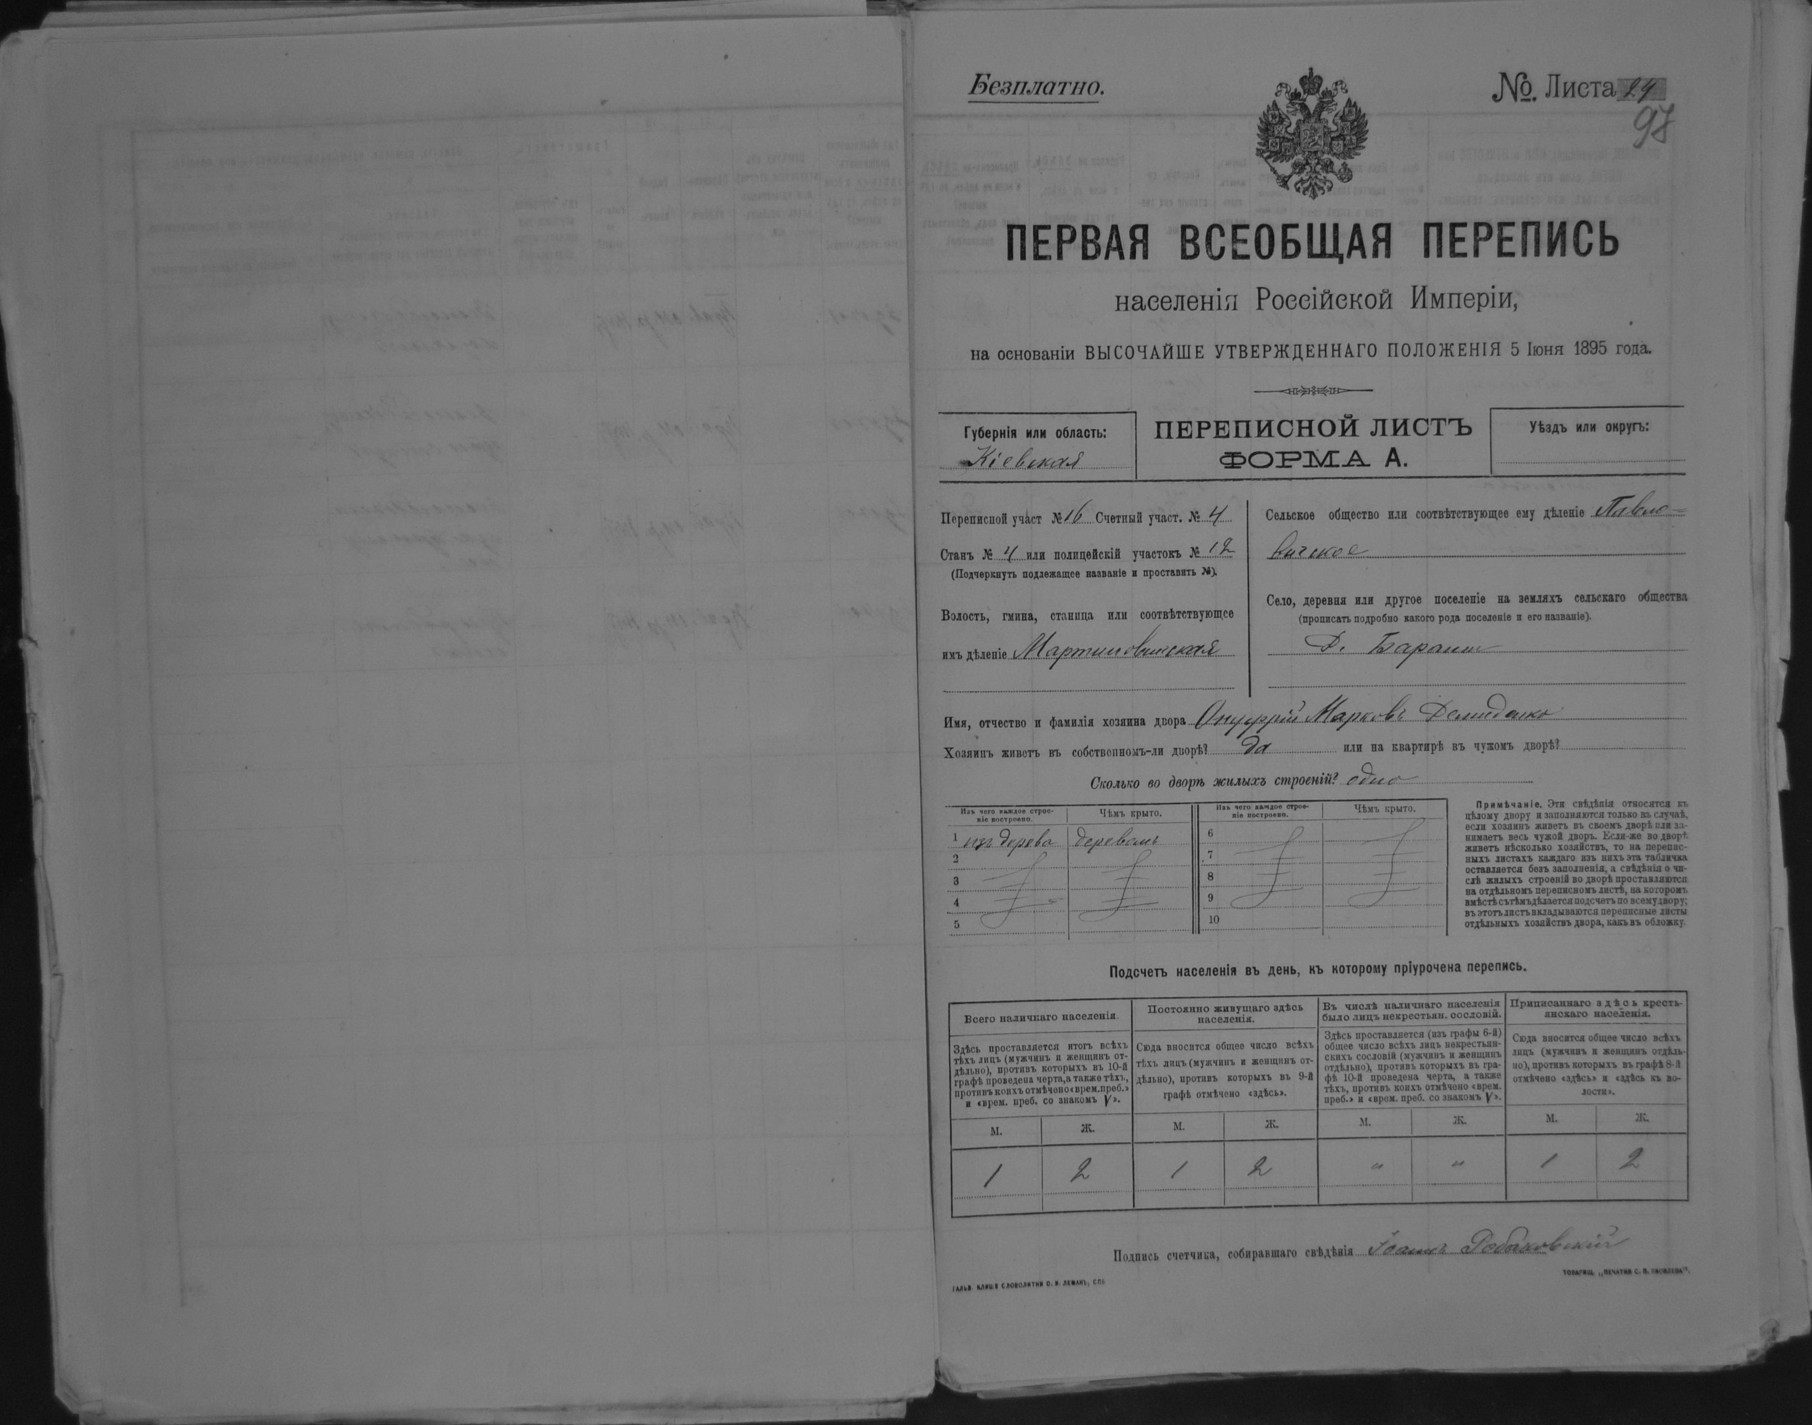 Безплатно.
№. Листа 24
97
ПЕРВАЯ ВСЕОБЩАЯ ПЕРЕПИСЬ
населенія Россійской Имперіи,
на основаніи ВЫСОЧАЙШЕ УТВЕРЖДЕННАГО ПОЛОЖЕНІЯ 5 Іюня 1895 года.
Губернія или область:
Кіевская
ПЕРЕПИСНОЙ ЛИСТЪ
ФОРМА А.
Уѣздъ или округъ:
Переписной участ № 16 Счетный участ. № 4
Станъ № 4 или полицейскій участокъ № 12
(Подчеркнуть подлежащее названіе и проставить №).
Волость, гмина, станица или соотвѣтствующее
имъ дѣленіе Мартиновичская
Сельское общество или соотвѣтствующее ему дѣленіе Павло-
вичское
Село, деревня или другое поселеніе на земляхъ сельскаго общества
(прописать подробно какого рода поселеніе и его названіе).
Д.
Имя, отчество и фамилія хозяина двора Онуфрій Марковъ Демиденко
Хозяинъ живетъ въ собственномъ-ли дворѣ? да или на квартирѣ въ чужомъ дворѣ?
Сколько во дворѣ жилыхъ строеній? одно
Изъ чего каждое строе-
ніе построено.
Чѣмъ крыто.
Изъ чего каждое строе-
ніе построено.
Чѣмъ крыто.
1 изъ дерева деревомъ
2
3
4
5
6
7
8
9
10
Примѣчаніе. Эти свѣдѣнія относятся къ
цѣлому двору и заполняются только въ случаѣ,
если хозяинъ живетъ въ своемъ дворѣ или за-
нимаетъ весь чужой дворъ. Если-же во дворѣ
живетъ нѣсколько хозяйствъ, то на перепис-
ныхъ листахъ каждаго изъ нихъ эта табличка
оставляется безъ заполненія, а свѣдѣнія о чи-
слѣ жилыхъ строеній во дворѣ проставляются
на отдѣльномъ переписномъ листѣ, на которомъ
вмѣстѣ съ тѣмъ дѣлается подсчетъ по всему двору;
въ этотъ листъ вкладываются переписные листы
отдѣльныхъ хозяйствъ двора, какъ въ обложку.
Подсчетъ населенія въ день, къ которому пріурочена перепись.
Всего наличнаго населенія.
Здѣсь проставляется итогъ всѣхъ
тѣхъ лицъ (мужчинъ и женщинъ от-
дѣльно), противъ которыхъ въ 10-й
графѣ проведена черта, а также тѣхъ,
противъ коихъ отмѣчено «врем. преб.»
и «врем. преб. со знакомъ V».
Постоянно живущаго здѣсь
населенія.
Сюда вносится общее число всѣхъ
тѣхъ лицъ (мужчинъ и женщинъ от-
дѣльно), противъ которыхъ въ 9-й
графѣ отмѣчено «здѣсь».
Въ числѣ наличнаго населенія
было лицъ некрестьян. сословій.
Здѣсь проставляется (изъ графы 6-й)
общее число всѣхъ лицъ некрестьян-
скихъ сословій (мужчинъ и женщинъ
отдѣльно), противъ которыхъ въ гра-
фѣ 10-й проведена черта, а также
тѣхъ, противъ коихъ отмѣчено «врем.
преб.» и «врем. преб. со знакомъ V».
Приписаннаго здѣсь кресть-
янскаго населенія.
Сюда вносится общее число всѣхъ
лицъ (мужчинъ и женщинъ отдѣль-
но), противъ которыхъ въ графѣ 8-й
отмѣчено «здѣсь» и «здѣсь въ во-
лости».
М. Ж. М. Ж. М. Ж. М. Ж.
1 2 1 2 " " 1 2
Подпись счетчика, собиравшаго свѣдѣнія Іоаннъ
ГАЛЬВ. КЛИШЕ СЛОВОЛИТНИ О. И. ЛЕМАНЪ, СПБ.
ТОВАРИЩ. „ПЕЧАТНЯ С. П. ЯКОВЛЕВА".